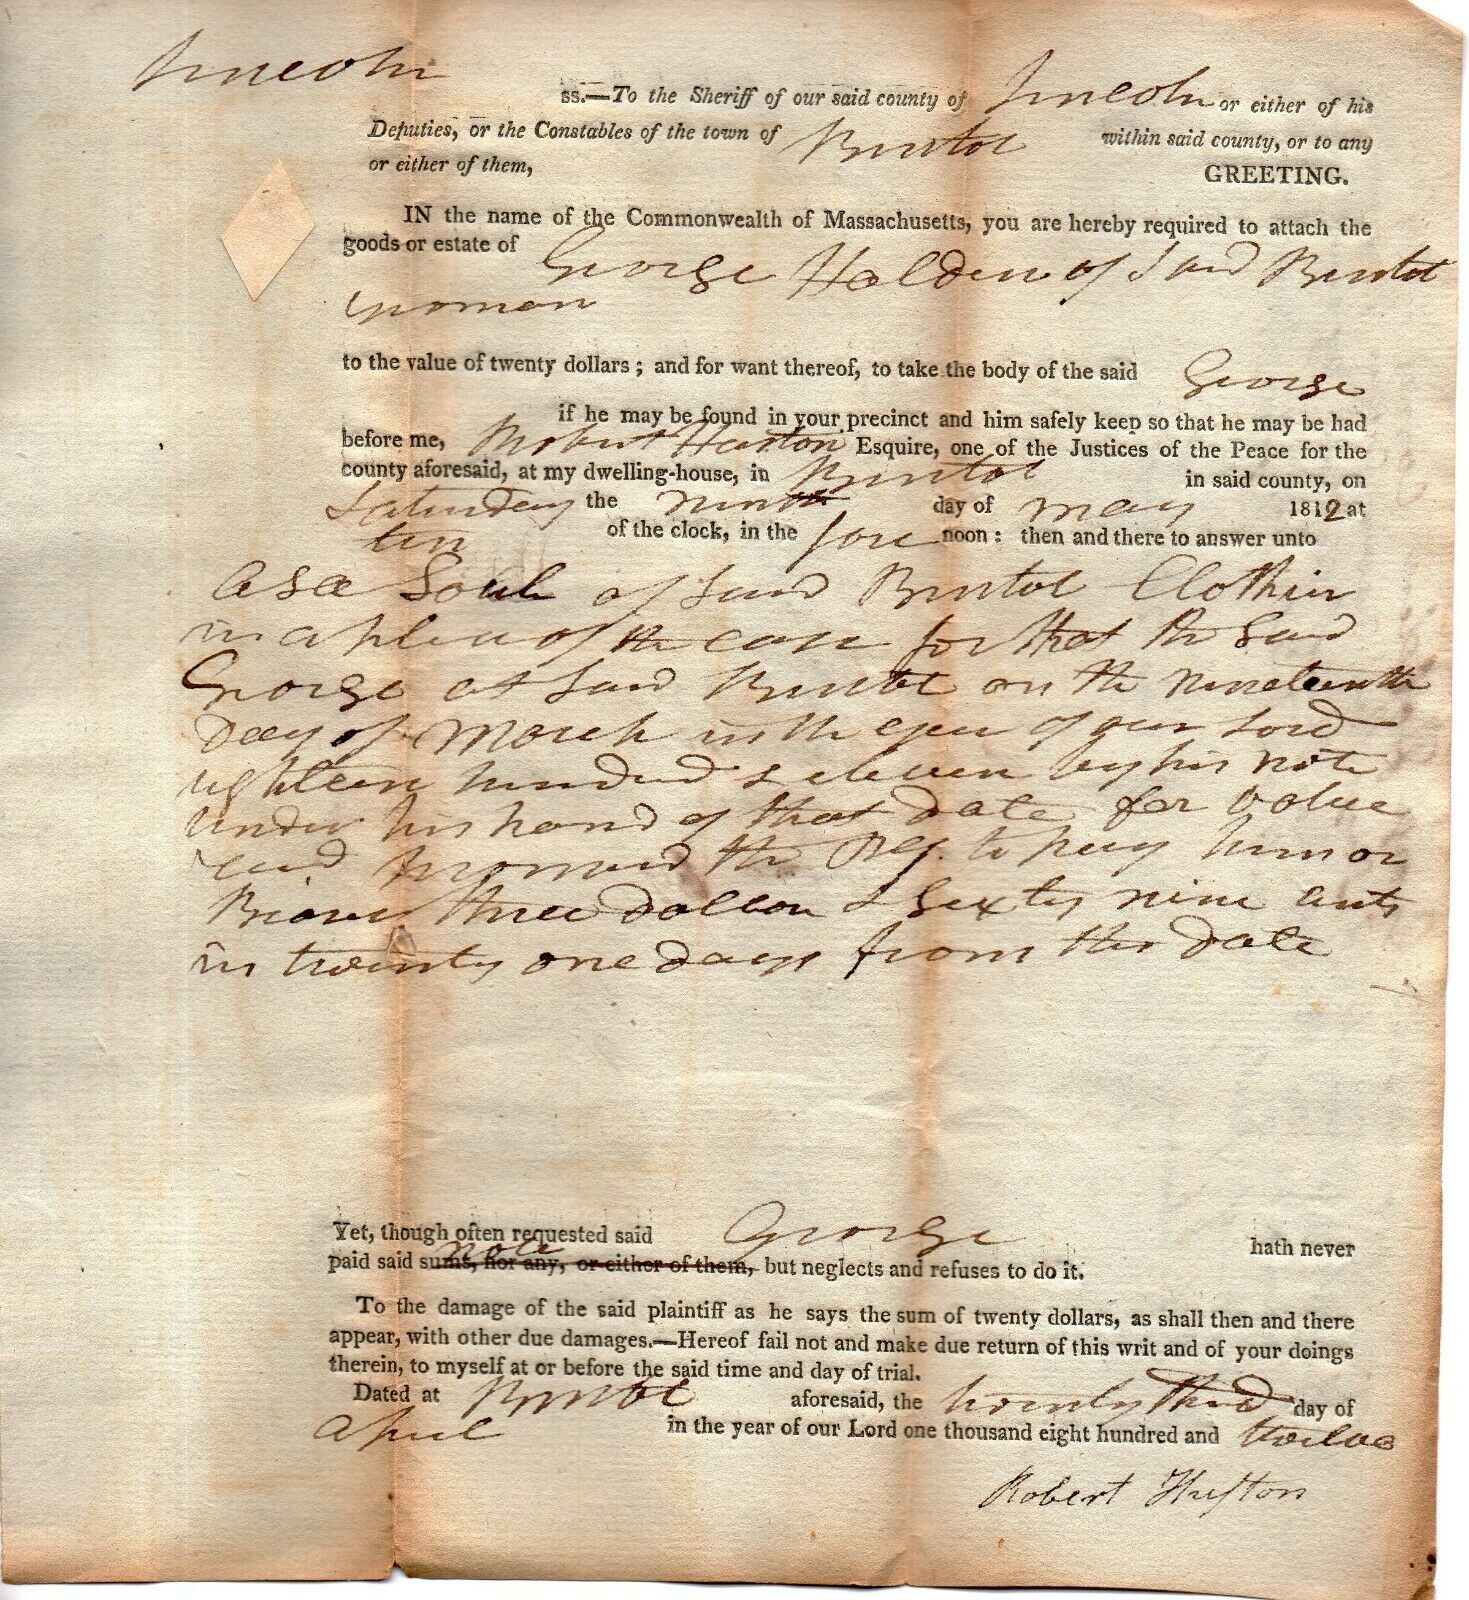 Lincoln
ss.—To the Sheriff of our said county of Lincoln or either of his
Deputies, or the Constables of the town of Bristol within said county, or to any
or either of them, GREETING.
IN the name of the Commonwealth of Massachusetts, you are hereby required to attach the
goods or estate of George Holden of Said Bristol
yeoman
to the value of twenty dollars; and for want thereof, to take the body of the said George
if he may be found in your precinct and him safely keep so that he may be had
before me, Robert Huston Esquire, one of the Justices of the Peace for the
county aforesaid, at my dwelling-house, in Bristol in said county, on
Saturday the ninth day of may 1812 at
ten of the clock, in the fore noon: then and there to answer unto
Asa Soule of Said Bristol Clothier
in a plea of the case for that the Said
George at Said Bristol on the nineteenth
Day of March in the year of our Lord
eighteen hundred & eleven by his note
under his hand of that date for value
recd promised the Plf. to pay him or
three dollars & Sixty nine cents
in twenty one days from the date
Yet, though often requested said George hath never
paid said note
sums, nor any, or either of them, but neglects and refuses to do it.
To the damage of the said plaintiff as he says the sum of twenty dollars, as shall then and there
appear, with other due damages.—Hereof fail not and make due return of this writ and of your doings
therein, to myself at or before the said time and day of trial.
Dated at Bristol aforesaid, the twenty third day of
April in the year of our Lord one thousand eight hundred and twelve
Robert Huston